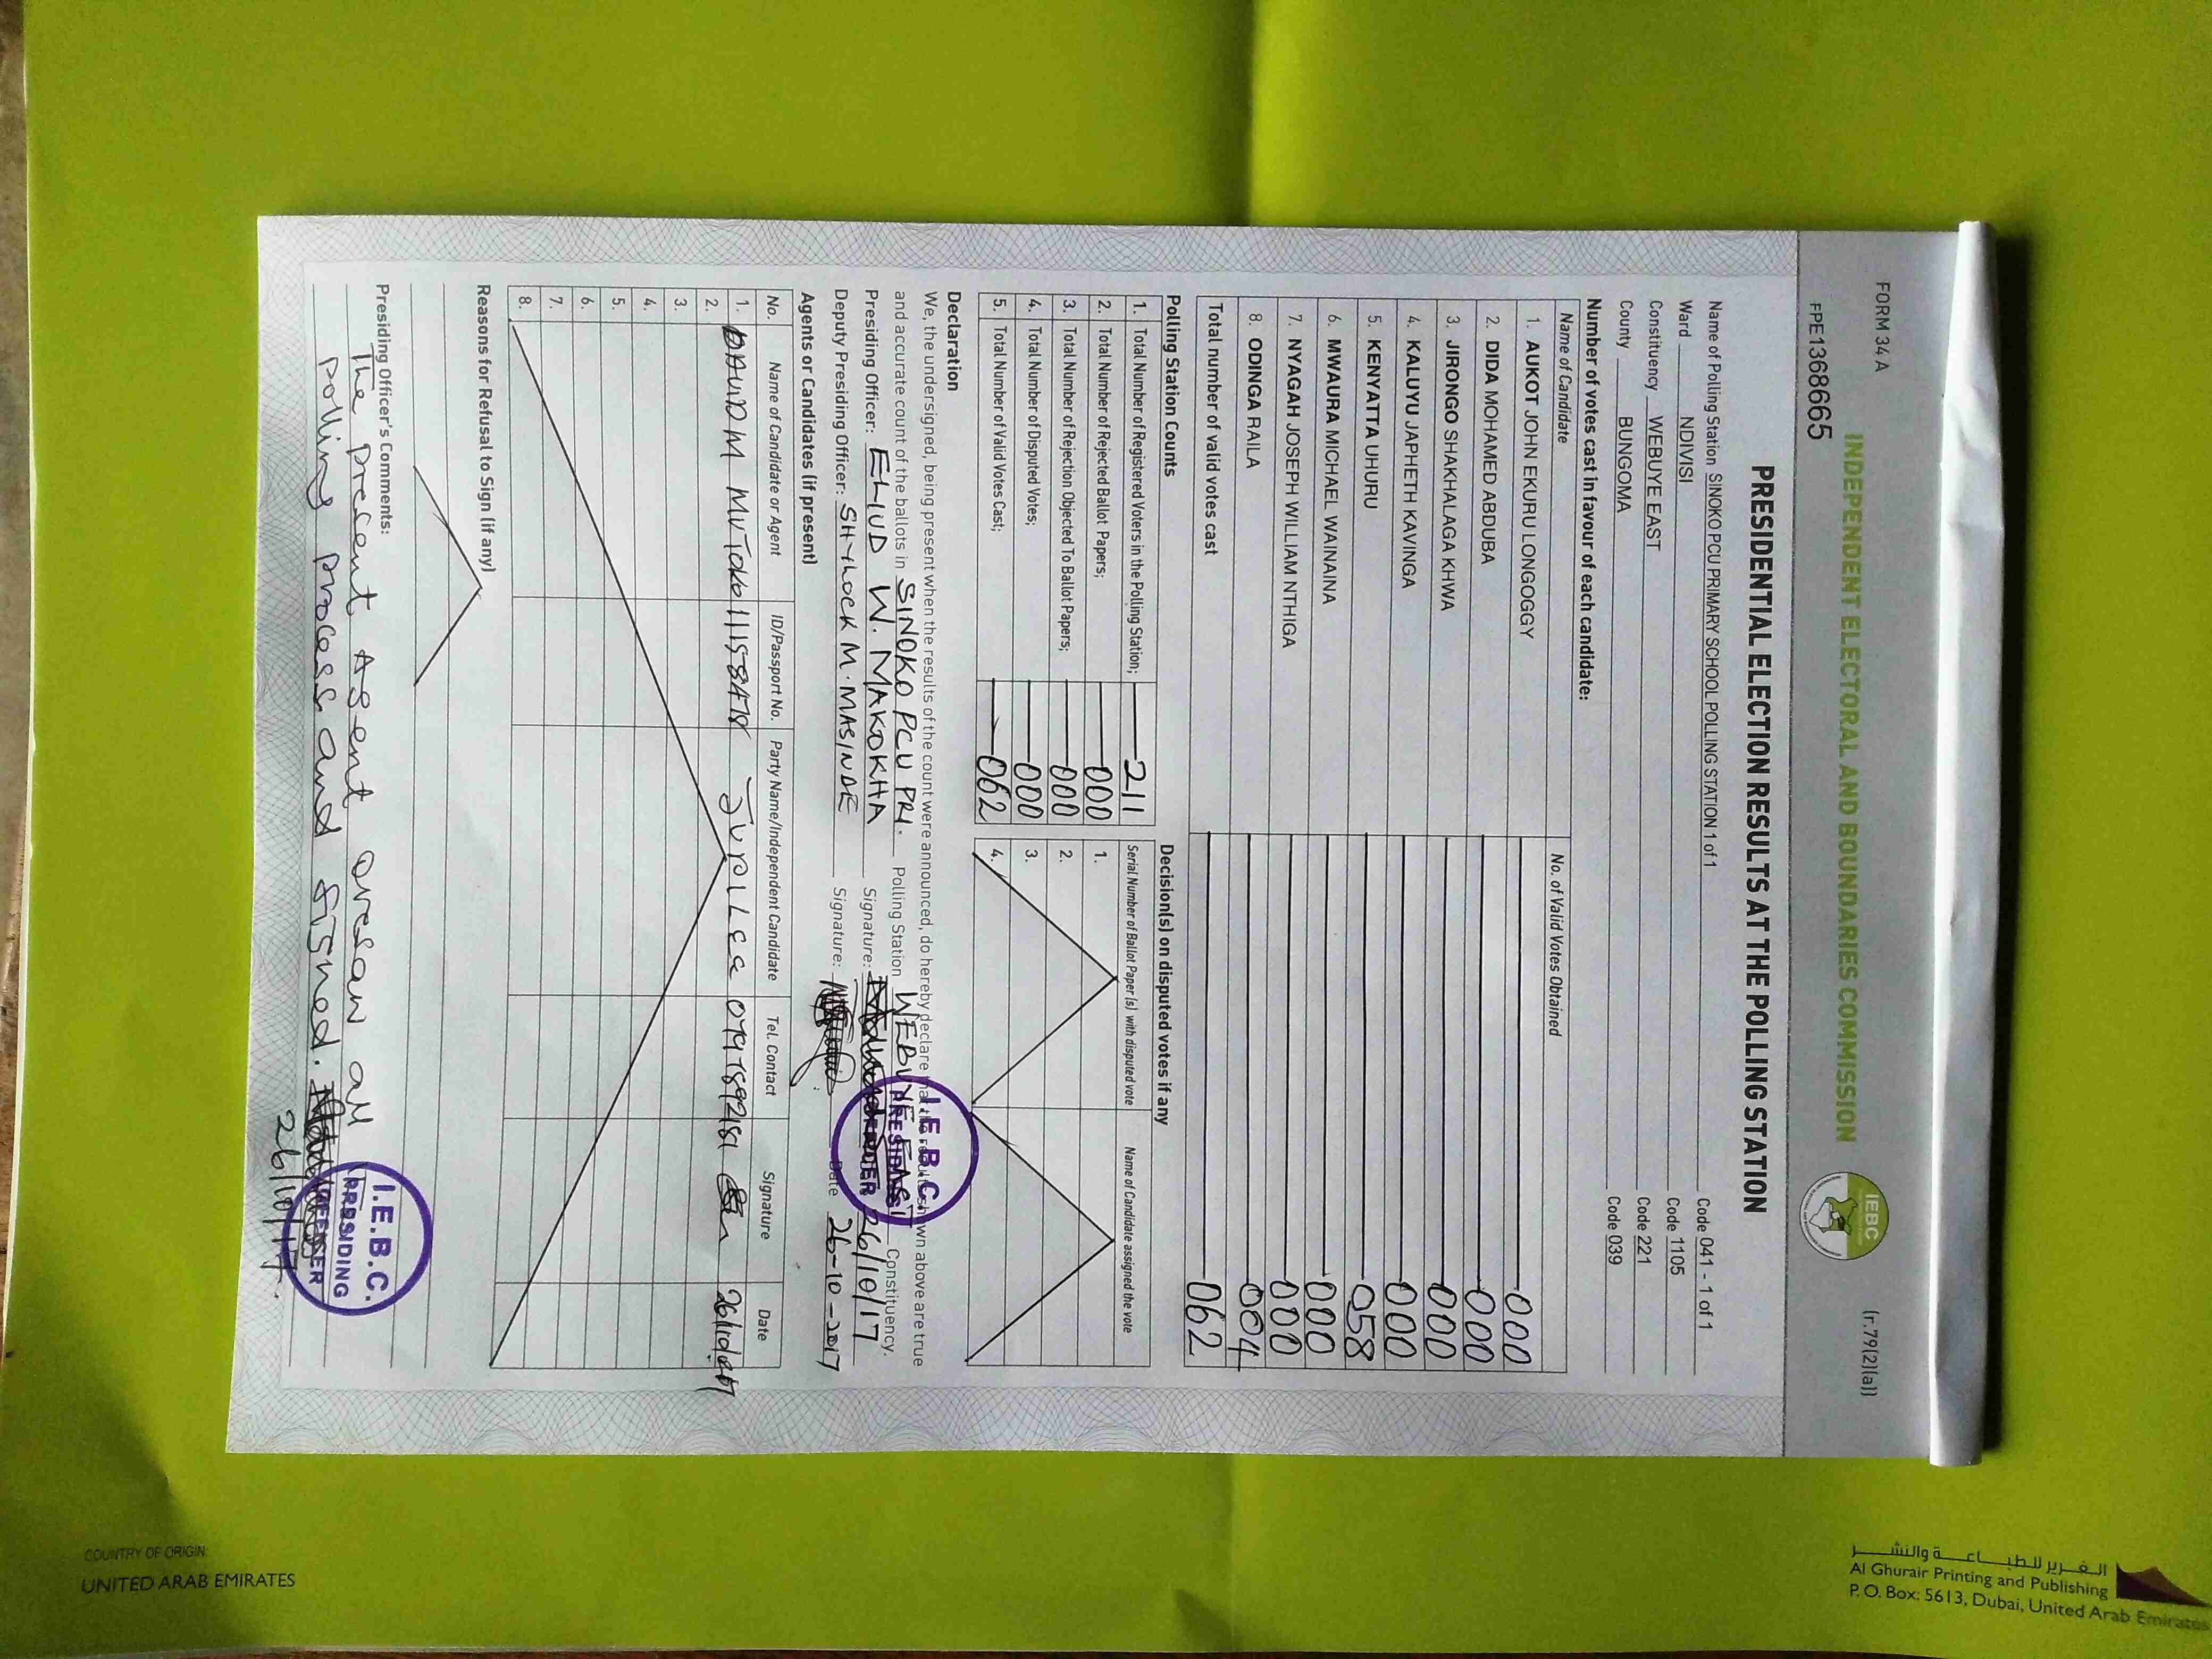 FORM 34 A
(r.79(2)(a))
INDEPENDENT ELECTORAL AND BOUNDARIES COMMISSION
IEBC
FPE1368665
PRESIDENTIAL ELECTION RESULTS AT THE POLLING STATION
Name of Polling Station SINOKO PCU PRIMARY SCHOOL POLLING STATION 1 of 1 Code 041 - 1 of 1
Ward NDIVISI Code 1105
Constituency WEBUYE EAST Code 221
County BUNGOMA Code 039
Number of votes cast in favour of each candidate:
Name of Candidate No. of Valid Votes Obtained
1. AUKOT JOHN EKURU LONGOGGY 000
2. DIDA MOHAMED ABDUBA 000
3. JIRONGO SHAKHALAGA KHWA 000
4. KALUYU JAPHETH KAVINGA 000
5. KENYATTA UHURU 058
6. MWAURA MICHAEL WAINAINA 000
7. NYAGAH JOSEPH WILLIAM NTHIGA 000
8. ODINGA RAILA 004
Total number of valid votes cast 062
Polling Station Counts Decision(s) on disputed votes if any
1. Total Number of Registered Voters in the Polling Station; 211 Serial Number of Ballot Paper (s) with disputed vote Name of Candidate assigned the vote
2. Total Number of Rejected Ballot Papers; 000 1.
3. Total Number of Rejection Objected To Ballot Papers; 000 2.
4. Total Number of Disputed Votes; 000 3.
5. Total Number of Valid Votes Cast; 062 4.
Declaration
We, the undersigned, being present when the results of the count were announced, do hereby declare that the results shown above are true
and accurate count of the ballots in SINOKO PCU PRI. Polling Station WEBUYE EAST Constituency.
Presiding Officer: ELIUD W. MAKOKHA Signature: 26/10/17
Deputy Presiding Officer: SHYLOCK M. MASINDE Signature: Date 26-10-2017
I.E.B.C.
PRESIDING
OFFICER
Agents or Candidates (if present)
No. Name of Candidate or Agent ID/Passport No. Party Name/Independent Candidate Tel. Contact Signature Date
1. DAVID M 11158478 JUBILEE
2.
3.
4.
5.
6.
7.
8.
Reasons for Refusal to Sign (if any)
Presiding Officer's Comments:
The present Agent oversaw all
polling process and signed.
26/10/17.
I.E.B.C.
PRESIDING
OFFICER
الغرير للطباعة والنشر
Al Ghurair Printing and Publishing
P. O. Box: 5613, Dubai, United Arab Emirates
COUNTRY OF ORIGIN:
UNITED ARAB EMIRATES